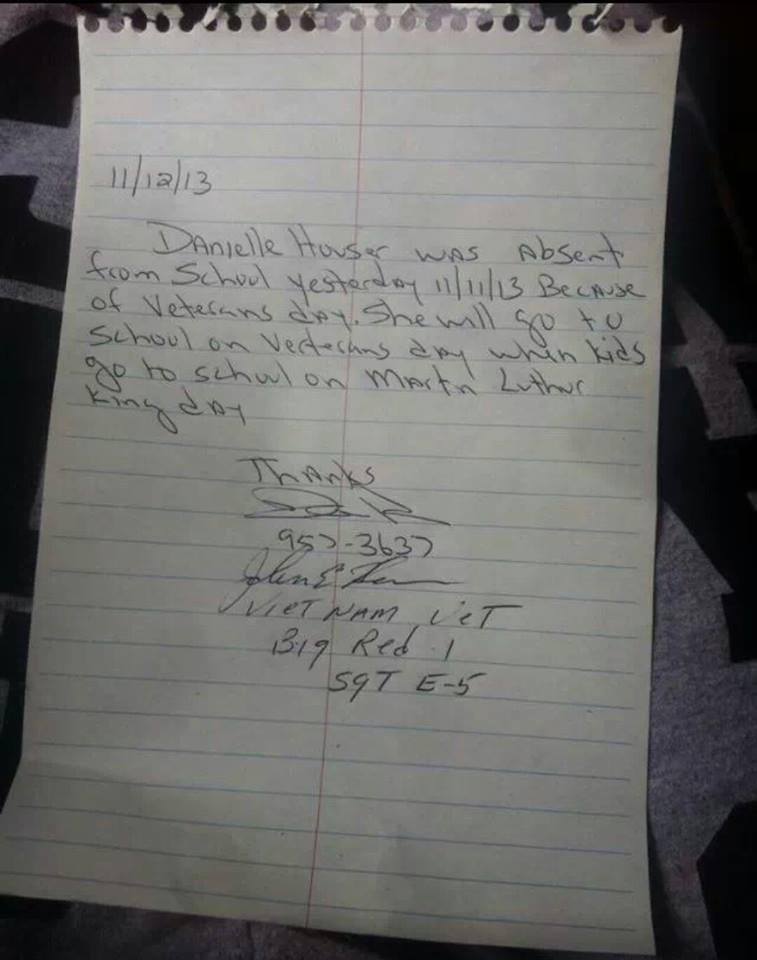 11/12/13
Danielle Houser was absent
from School yesterday 11/11/13 Because
of Veterans day. She will go to
School on Vecterans day when kids
go to school on Martn Luthur
King day
Thanks
957-3637
John E
VIETNAM VeT
Big Red 1
SgT E-5